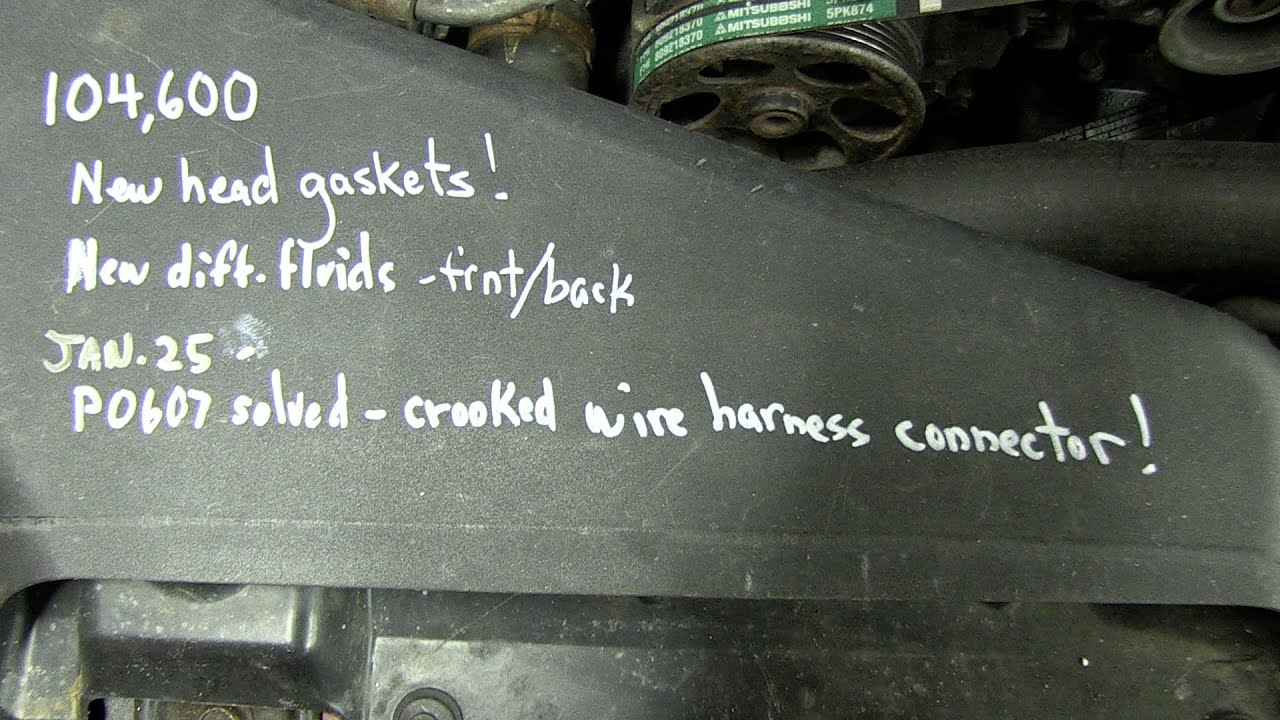 MITSUBOSHI 5PK874
809218370 MITSUBOSHI
104,600
New head gaskets!
New diff. fluids - frnt/back
JAN. 25 -
P0607 solved - crooked wire harness connector!